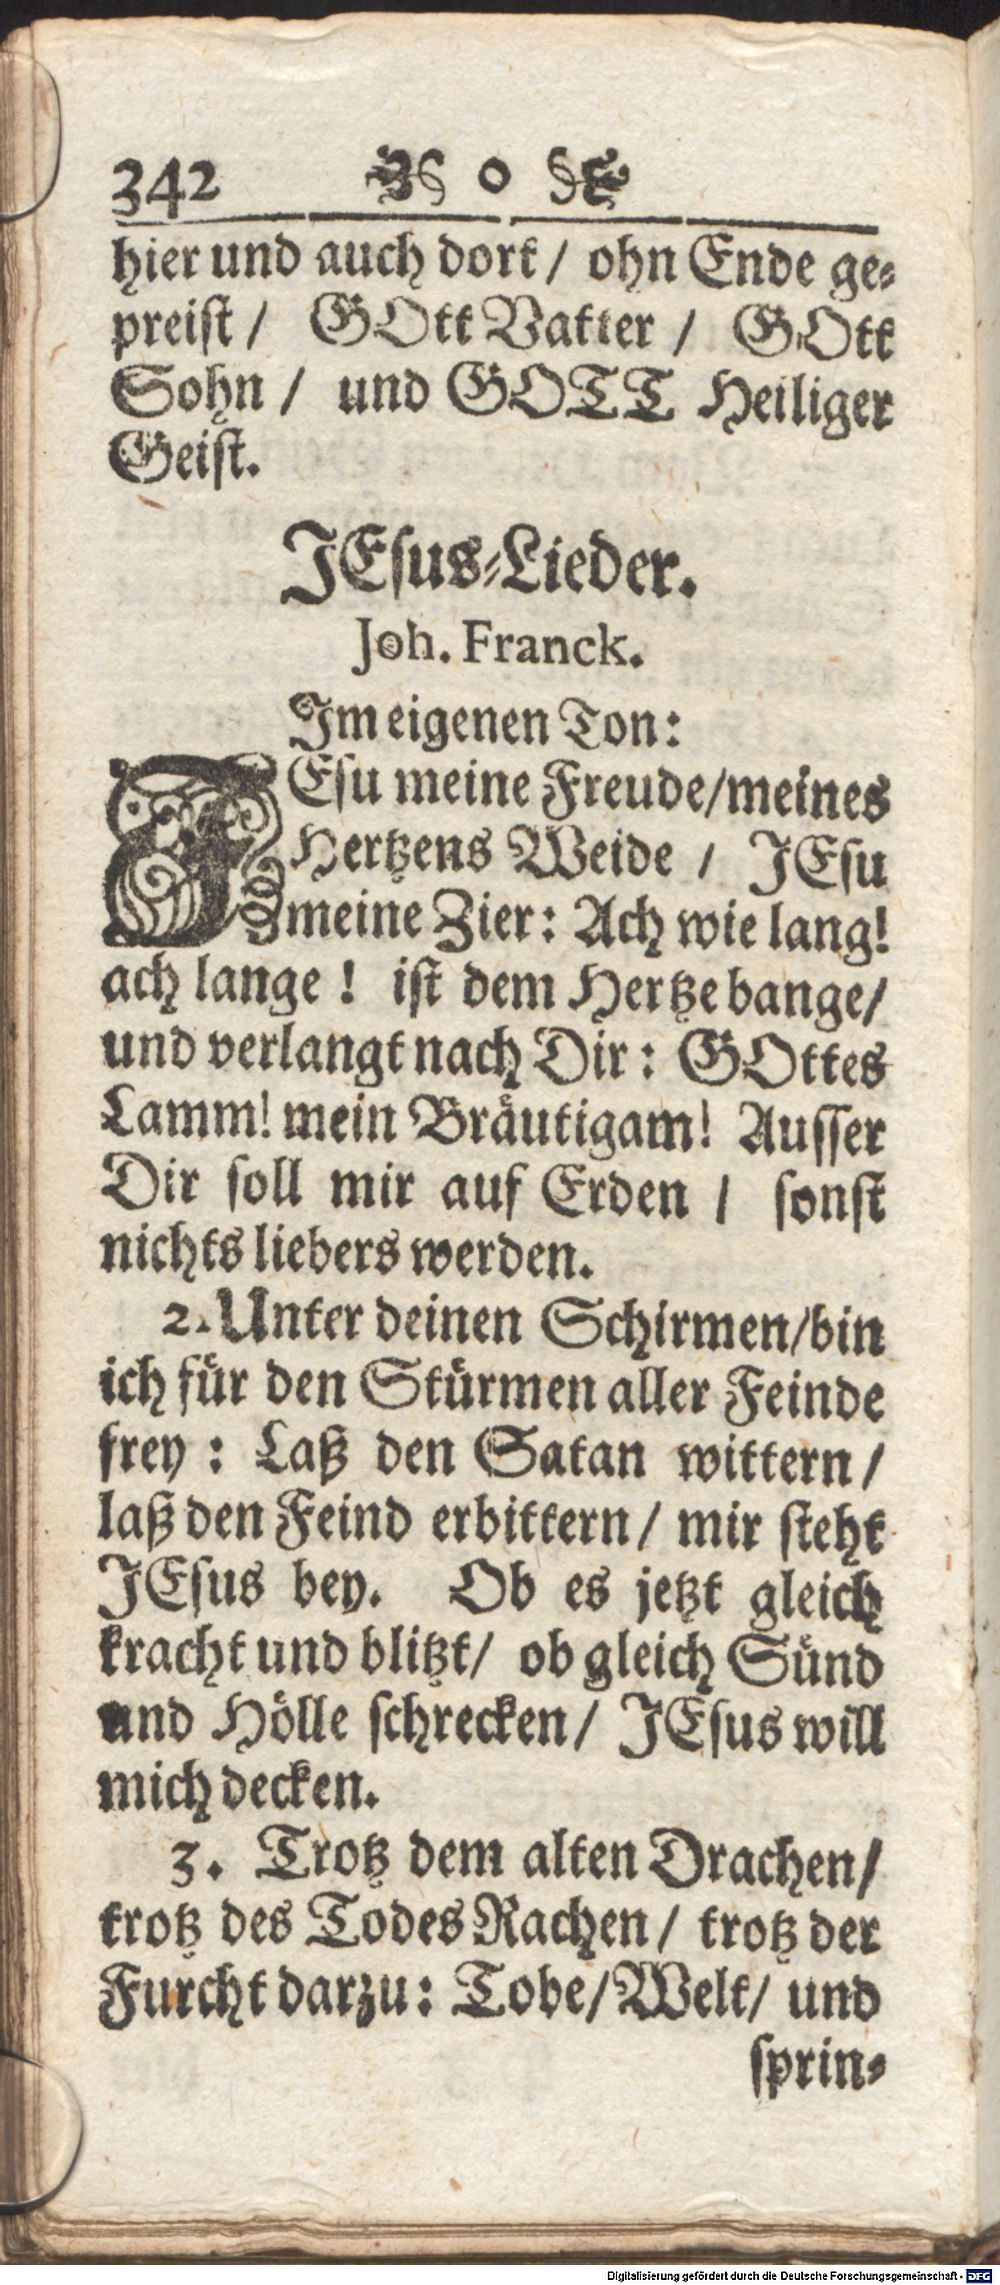 342 0
hier und auch dort / ohn Ende ge-
preist / GOtt Vatter / GOtt
Sohn / und GOTT Heiliger
Geist.
JEsus-Lieder.
Joh. Franck.
Im eigenen Ton:
JEsu meine Freude/meines
Hertzens Weide / JEsu
meine Zier: Ach wie lang!
ach lange ! ist dem Hertze bange/
und verlangt nach Dir: GOttes
Lamm! mein Bräutigam! Ausser
Dir soll mir auf Erden / sonst
nichts liebers werden.
2. Unter deinen Schirmen/bin
ich für den Stürmen aller Feinde
frey : Laß den Satan wittern/
laß den Feind erbittern/ mir steht
JEsus bey. Ob es jetzt gleich
kracht und blitzt/ ob gleich Sünd
und Hölle schrecken/ JEsus will
mich decken.
3. Trotz dem alten Drachen/
trotz des Todes Rachen/ trotz der
Furcht darzu: Tobe/Welt/ und
sprin-
Digitalisierung gefördert durch die Deutsche Forschungsgemeinschaft - DFG